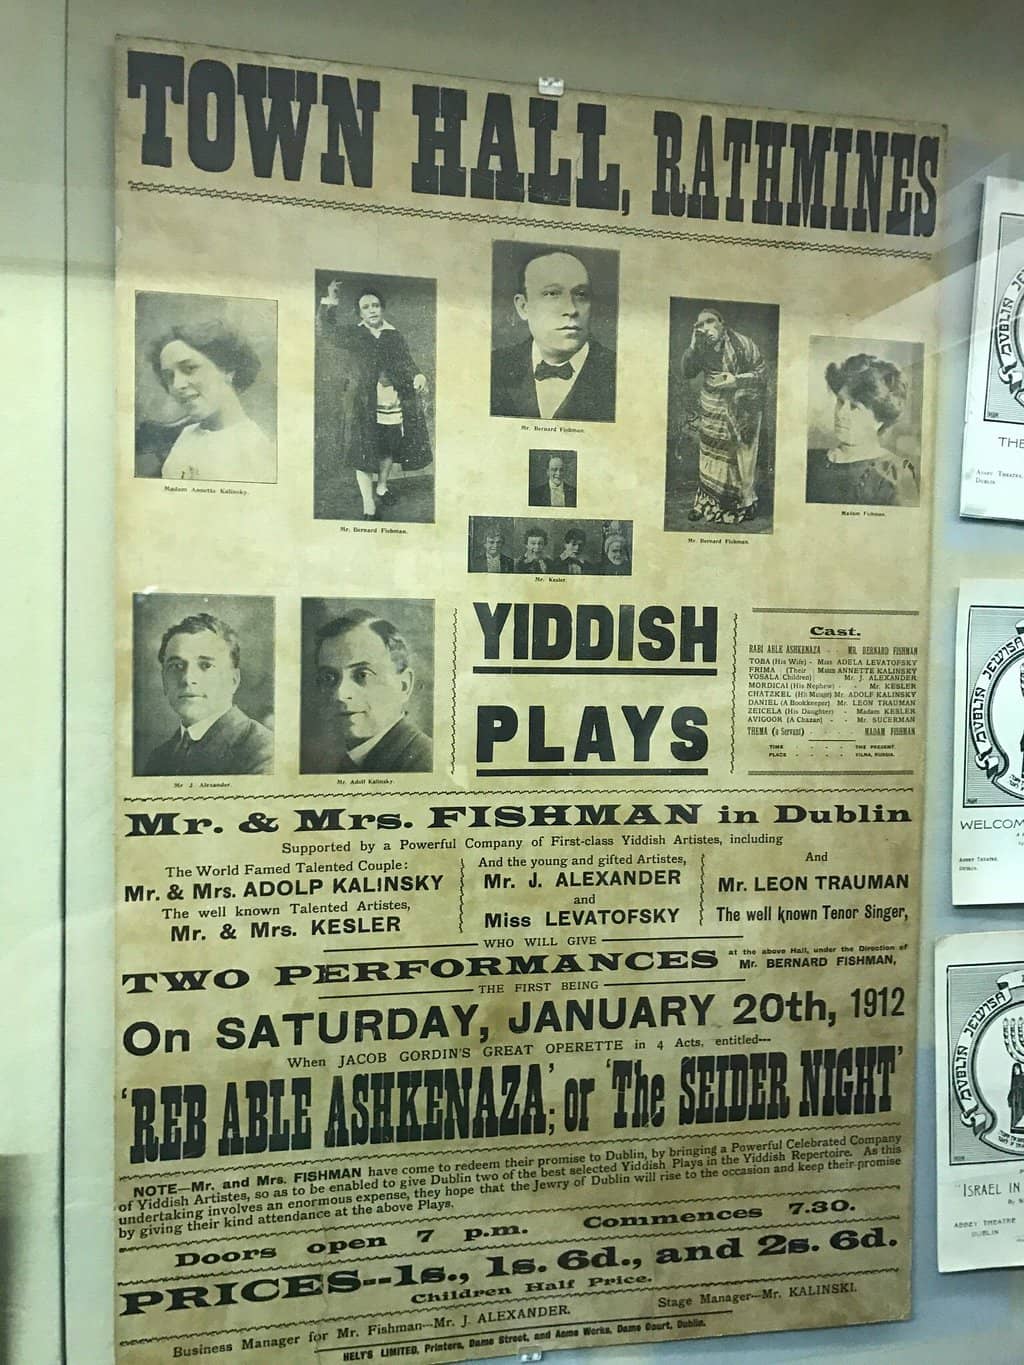 TOWN HALL, RATHMINES
Madam Annetta Kalinsky.
Mr. Bernard Fishman.
Mr. Bernard Fishman.
Mr. Kesler.
Mr. Bernard Fishman.
Madam Fishman.
Mr J. Alexander.
Mr. Adolf Kalinsky.
YIDDISH
PLAYS
Cast.
RABI ABLE ASHKENAZA - - MR. BERNARD FISHMAN
TOBA (His Wife) - Miss ADELA LEVATOFSKY
FRIMA (Their Madam ANNETTE KALINSKY
YOSALA Children) Mr. J. ALEXANDER
MORDICAI (His Nephew) - - Mr. KESLER
CHATZKEL (His Mutage) Mr. ADOLF KALINSKY
DANIEL (A Bookkeeper) Mr. LEON TRAUMAN
ZEICELA (His Daughter) - Madam KESLER
AVIGOOR (A Chazan) - - Mr. SUCERMAN
THEMA (a Servant) - MADAM FISHMAN
TIME - - - - THE PRESENT
PLACE - - - - VILNA, RUSSIA.
Mr. & Mrs. FISHMAN in Dublin
Supported by a Powerful Company of First-class Yiddish Artistes, including
The World Famed Talented Couple:
Mr. & Mrs. ADOLP KALINSKY
The well known Talented Artistes,
Mr. & Mrs. KESLER
And the young and gifted Artistes,
Mr. J. ALEXANDER
and
Miss LEVATOFSKY
And
Mr. LEON TRAUMAN
The well known Tenor Singer,
WHO WILL GIVE
TWO PERFORMANCES at the above Hall, under the Direction of
Mr. BERNARD FISHMAN,
THE FIRST BEING
On SATURDAY, JANUARY 20th, 1912
When JACOB GORDIN'S GREAT OPERETTE in 4 Acts, entitled---
'REB ABLE ASHKENAZA,' or 'The SEIDER NIGHT'
NOTE—Mr. and Mrs. FISHMAN have come to redeem their promise to Dublin, by bringing a Powerful Celebrated Company
of Yiddish Artistes, so as to be enabled to give Dublin two of the best selected Yiddish Plays in the Yiddish Repertoire. As this
undertaking involves an enormous expense, they hope that the Jewry of Dublin will rise to the occasion and keep their promise
by giving their kind attendance at the above Plays.
Doors open 7 p.m. Commences 7.30.
PRICES--1s., 1s. 6d., and 2s. 6d.
Children Half Price.
Business Manager for Mr. Fishman—Mr. J. ALEXANDER. Stage Manager—Mr. KALINSKI.
HELY'S LIMITED, Printers, Dame Street, and Acme Works, Dame Court, Dublin.
DUBLIN JEWISH
THE
ABBEY THEATRE,
DUBLIN
DUBLIN JEWISH
WELCOM
ABBEY THEATRE,
DUBLIN.
DUBLIN JEWISH
"ISRAEL IN
ABBEY THEATRE
DUBLIN